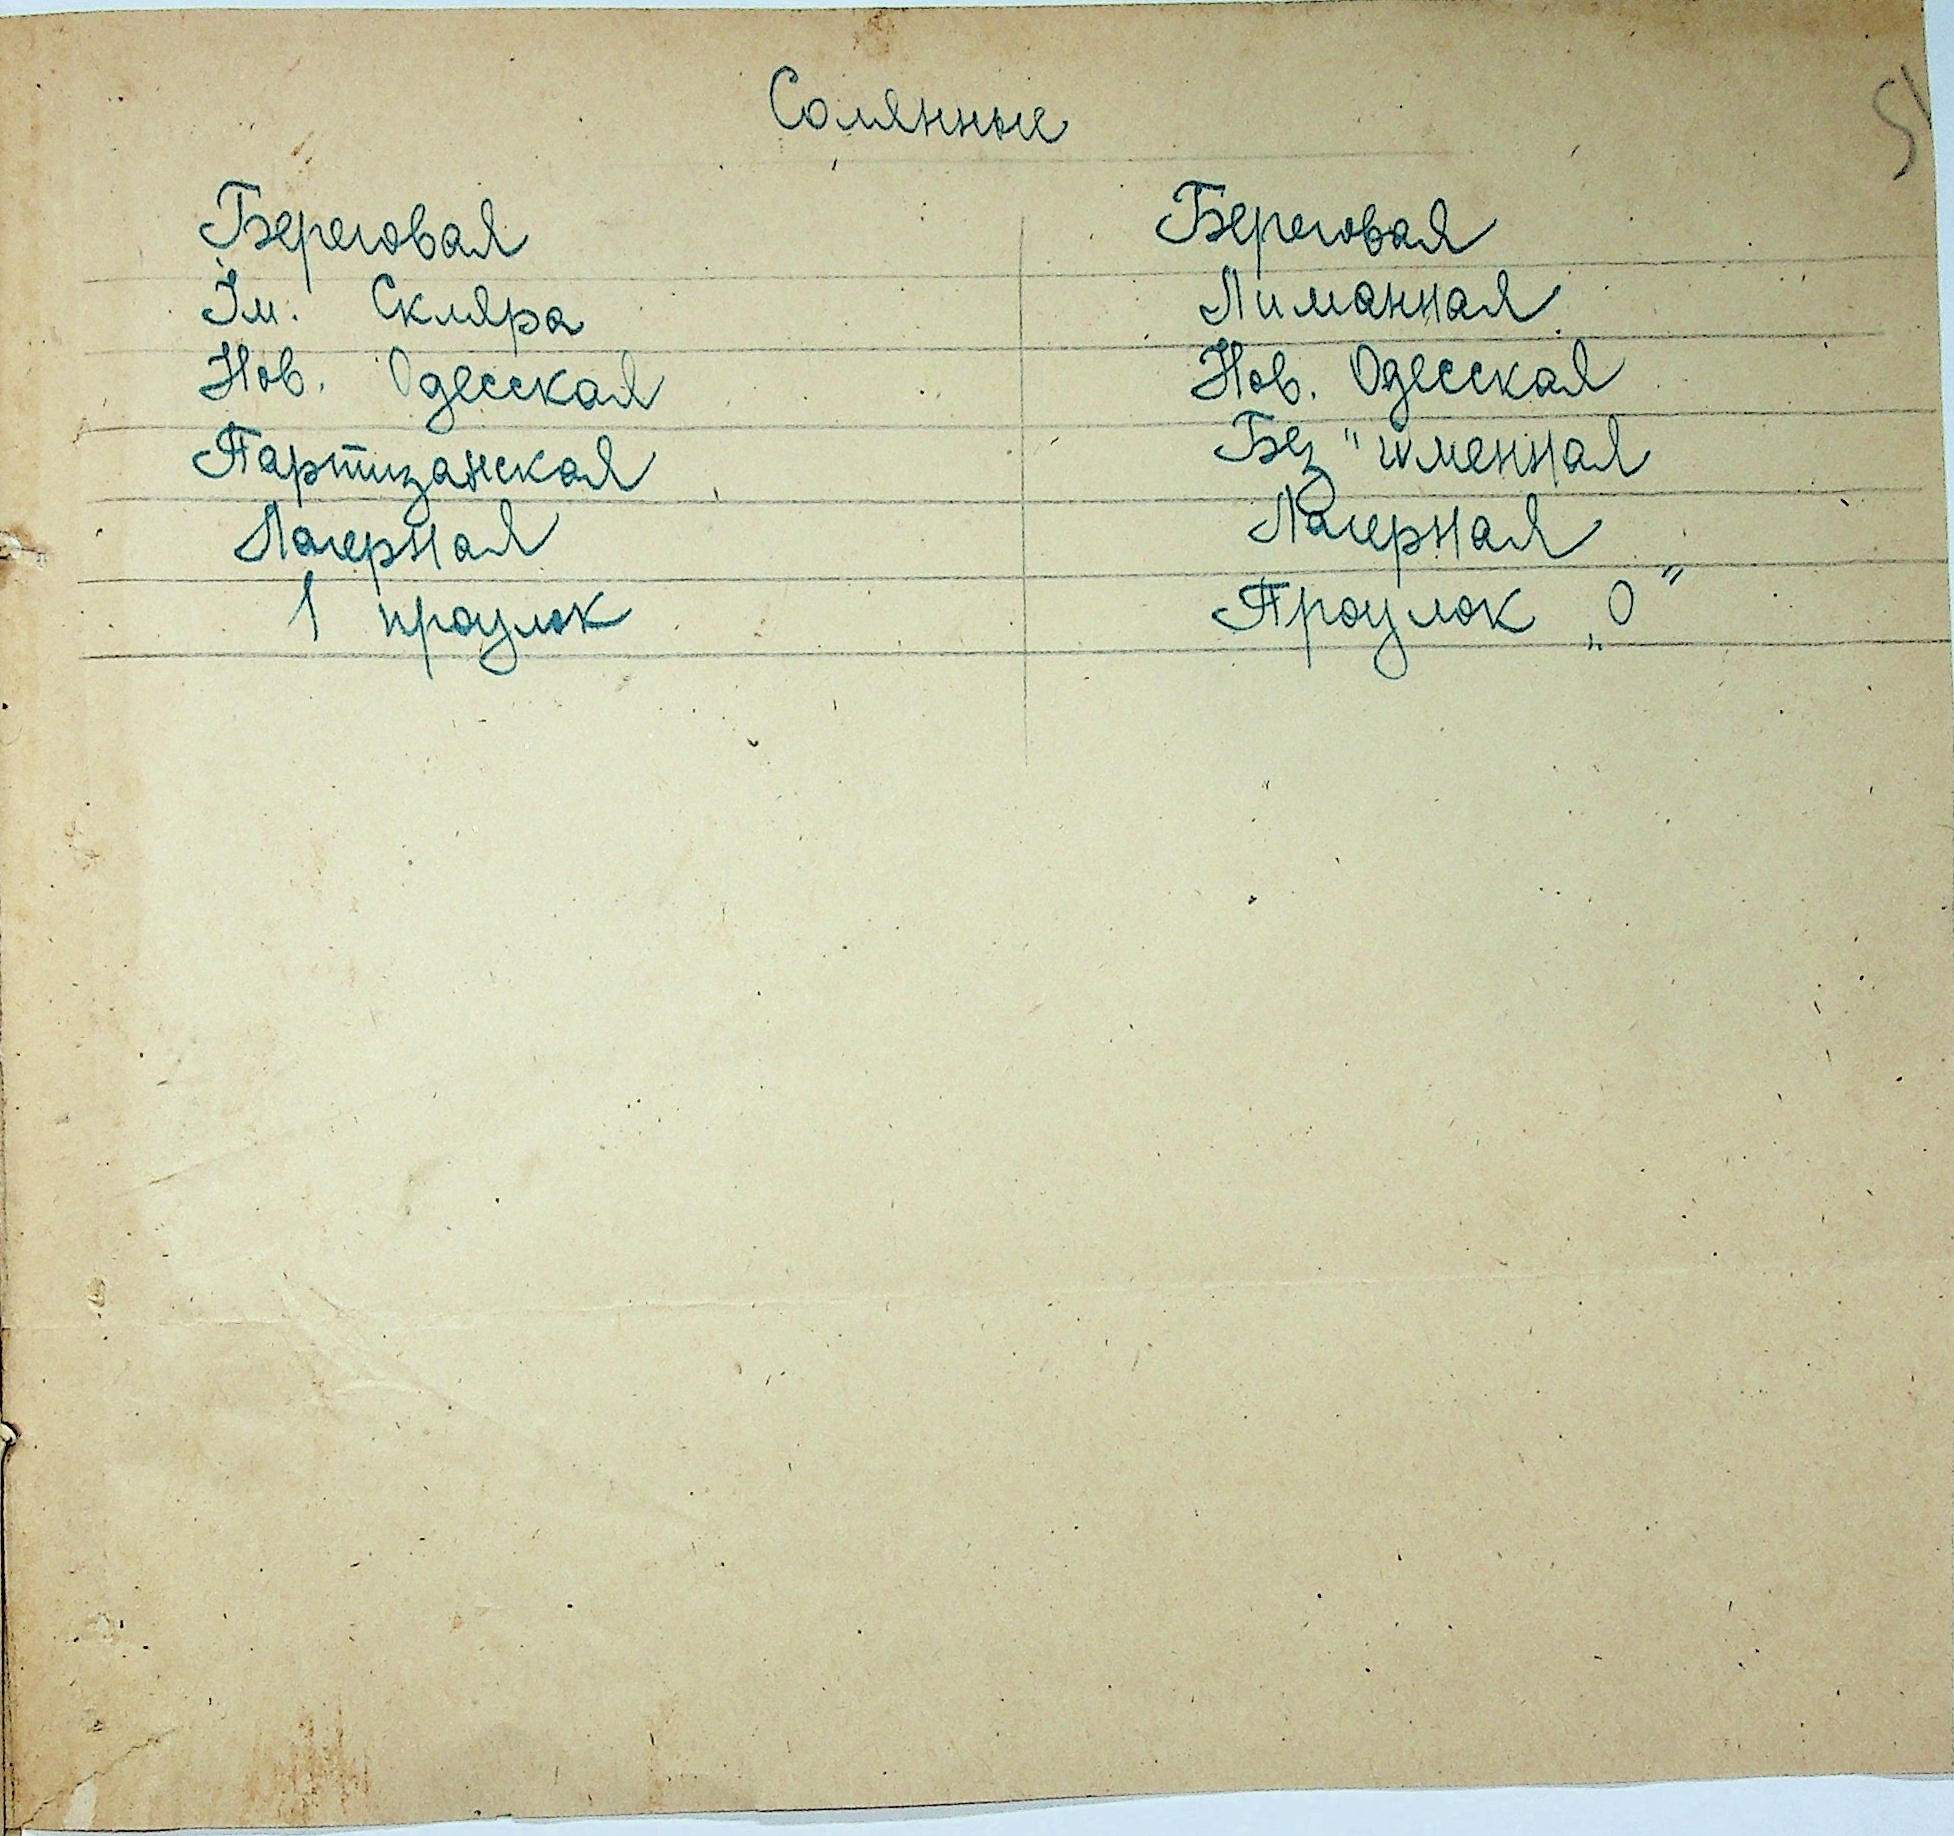 Солянные
Береговая Береговая
Им. Скляра Лиманная
Нов. Одесская Нов. Одесская
Партизанская Без "именная
Лагерная Лагерная
1 проулок Проулок „О"